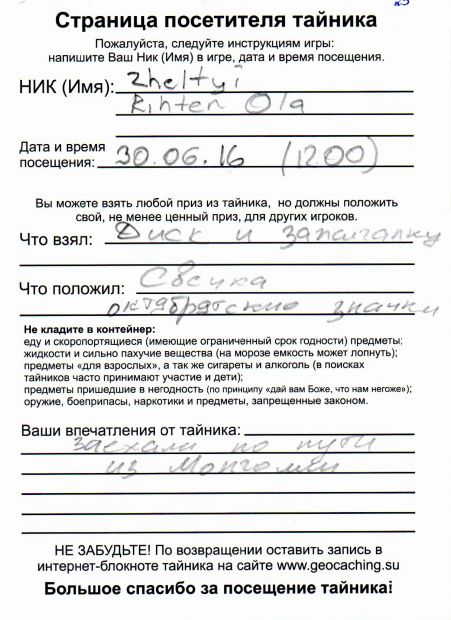 Страница посетителя тайника
Пожалуйста, следуйте инструкциям игры:
напишите Ваш Ник (Имя) в игре, дата и время посещения.
НИК (Имя): Zheltyi
Rihter Ola
Дата и время
посещения: 30.06.16 (1200)
Вы можете взять любой приз из тайника, но должны положить
свой, не менее ценный приз, для других игроков.
Что взял: Диск и зажигалку
Что положил: Свечка
октябрятские значки
Не кладите в контейнер:
еду и скоропортящиеся (имеющие ограниченный срок годности) предметы;
жидкости и сильно пахучие вещества (на морозе емкость может лопнуть);
предметы «для взрослых», а так же сигареты и алкоголь (в поисках
тайников часто принимают участие и дети);
предметы пришедшие в негодность (по принципу «дай вам Боже, что нам негоже»);
оружие, боеприпасы, наркотики и предметы, запрещенные законом.
Ваши впечатления от тайника:
заехали по пути
из Монголии
НЕ ЗАБУДЬТЕ! По возвращении оставить запись в
интернет-блокноте тайника на сайте www.geocaching.su
Большое спасибо за посещение тайника!